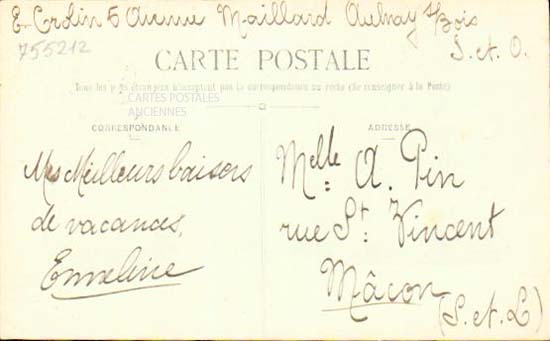 E. Crolin 5 Avenue Maillard Aulnay s/Bois
S. et O.
755212
CARTE POSTALE
Tous les pays étrangers n'acceptent pas la correspondance au recto (Se renseigner à la Poste)
CARTES POSTALES
ANCIENNES
CORRESPONDANCE
Mes Meilleurs baisers
de vacances,
Emeline
ADRESSE
Melle A. Pin
rue St. Vincent
Mâcon
(S. et L)